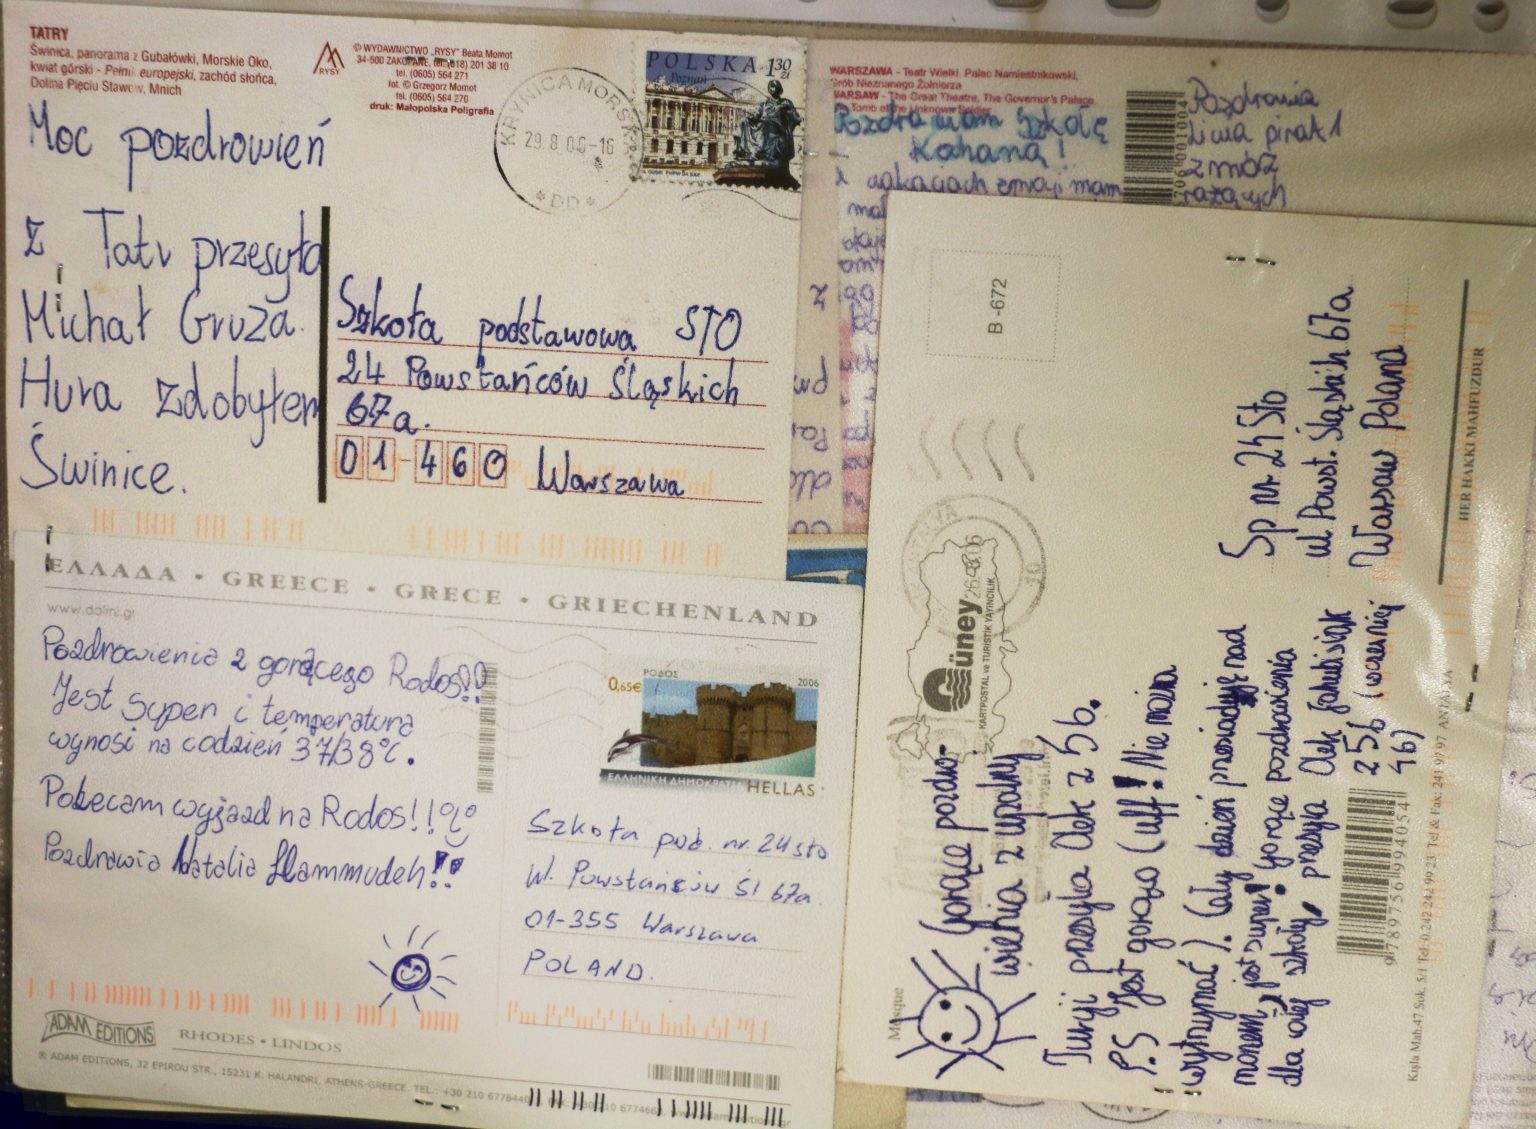 TATRY
Świnica, panorama z Gubałówki, Morskie Oko,
kwiat górski - Pełnik europejski, zachód słońca,
Dolina Pięciu Stawów, Mnich
RYSY
© WYDAWNICTWO „RYSY" Beata Momot
34-500 ZAKOPANE, tel. (018) 201 38 10
tel. (0605) 564 271
fot. © Grzegorz Momot
tel. (0605) 564 270
druk: Małopolska Poligrafia
KRYNICA MORSKA
29.8.06-16
*DD*
POLSKA 130 zł
Poznań
Moc pozdrowień
z Tatr przesyła
Michał Gruza.
Hura zdobyłem
Świnice.
Szkoła podstawowa STO
24 Powstańców Śląskich
67a.
01-460 Warszawa
WARSZAWA - Teatr Wielki, Pałac Namiestnikowski,
Grób Nieznanego Żołnierza
WARSAW - The Great Theatre, The Governor's Palace,
Tomb of the Unknown Soldier
Pozdrawiam Szkołę
Kochaną!
Pozdrowia
pirat
z mórz
ΕΛΛΑΔΑ • GREECE • GRECE • GRIECHENLAND
www.dolini.gr
Pozdrowienia z gorącego Rodos!!
Jest super i temperatura
wynosi na codzień 37/38°C.
Polecam wyjazd na Rodos!!
Pozdrawia Natalia Hammudeh!!
ΡΟΔΟΣ 2006
0,65€
ΕΛΛΗΝΙΚΗ ΔΗΜΟΚΡΑΤΙΑ HELLAS
Szkoła pod. nr. 24 sto
Ul. Powstańców Śl 67a
01-355 Warszawa
POLAND.
ADAM EDITIONS RHODES • LINDOS
® ADAM EDITIONS, 32 EPIROU STR., 15231 K. HALANDRI, ATHENS-GREECE, TEL.: +30 210 6778440
B-672
ANTALYA
26.8.06
10
Güney
KARTPOSTAL ve TURİSTİK YAYINCILIK
Mosque
Gorące pozdro-
wienia z upalnej
Turcji przesyła Olek z 5b.
P.S Jest gorąco (uff! Nie można
wytrzymać). Cały dzień przesiaduję nad
morzem, jest super! Gorące pozdrowienia
dla całej szkoły, przesyła Olek Jakubisiak
z 5b
467
Sp nr. 24 Sto
ul Powst. Śląskich 67a
Warsaw Poland
9789756994054
HER HAKKI MAHFUZDUR
Kışla Mah.47 Sok. 5/1 Tel:0.242 244 99 23 Tel & Fax: 241 97 97 ANTALYA